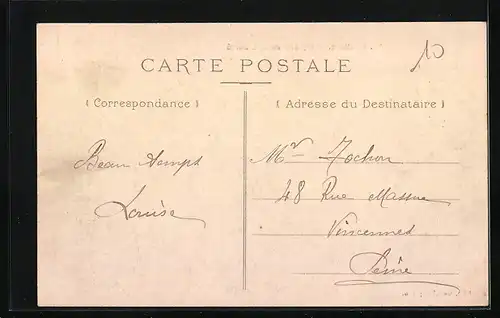 10
CARTE POSTALE
( Correspondance )
( Adresse du Destinataire )
Beau temps
Louise
Mr Jochon
48 Rue Massue
Vincennes
Seine